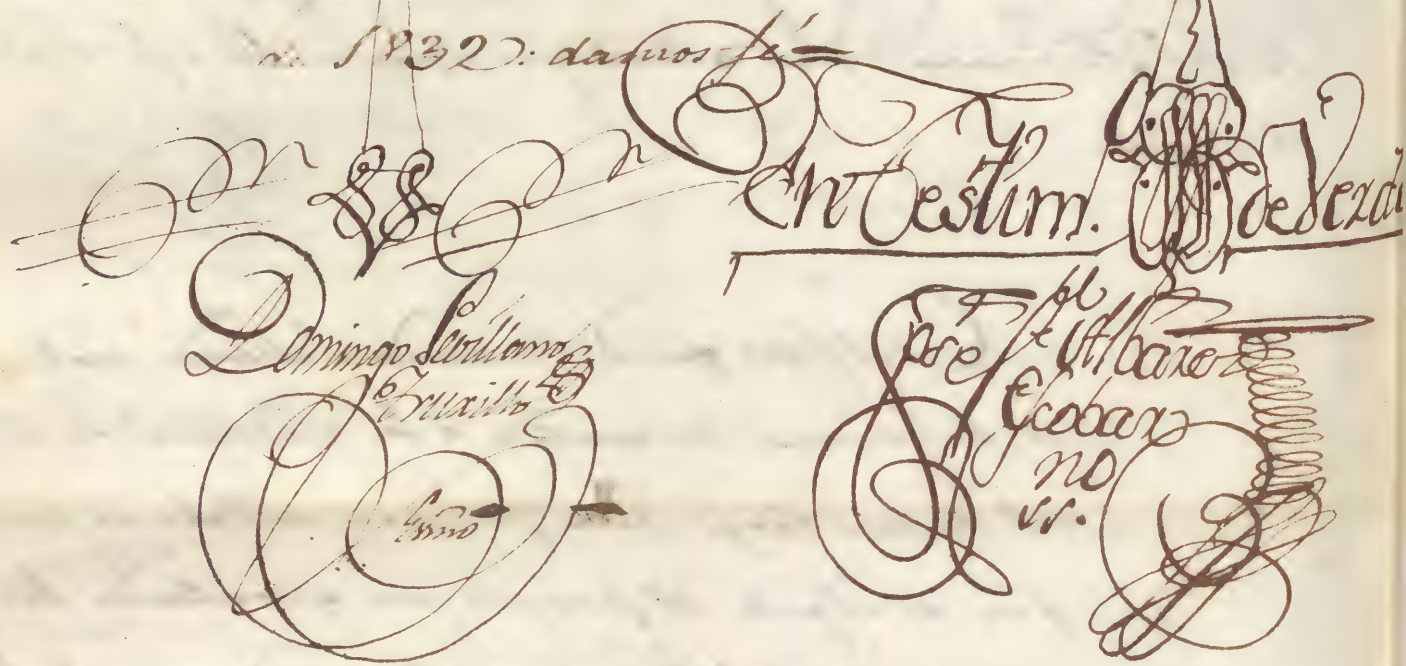 de 1832: damos fé
En testim. de Verda
Domingo Sevillano
de Truxillo
Josef Albarez
Escobar
no
ss.